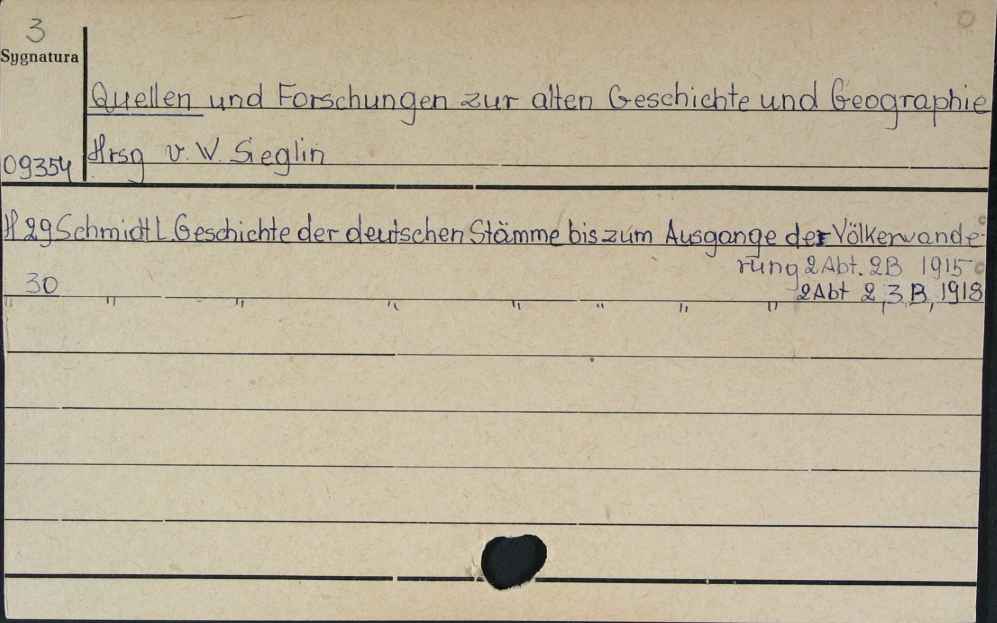 3
Sygnatura
Quellen und Forschungen zur alten Geschichte und Geographie
Hrsg v. W. Sieglin
09354
H 29 Schmidt L. Geschichte der deutschen Stämme bis zum Ausgange der Völkerwande-
rung 2 Abt. 2 B 1915
30 " " " " " " " " 2 Abt 2, 3 B, 1918